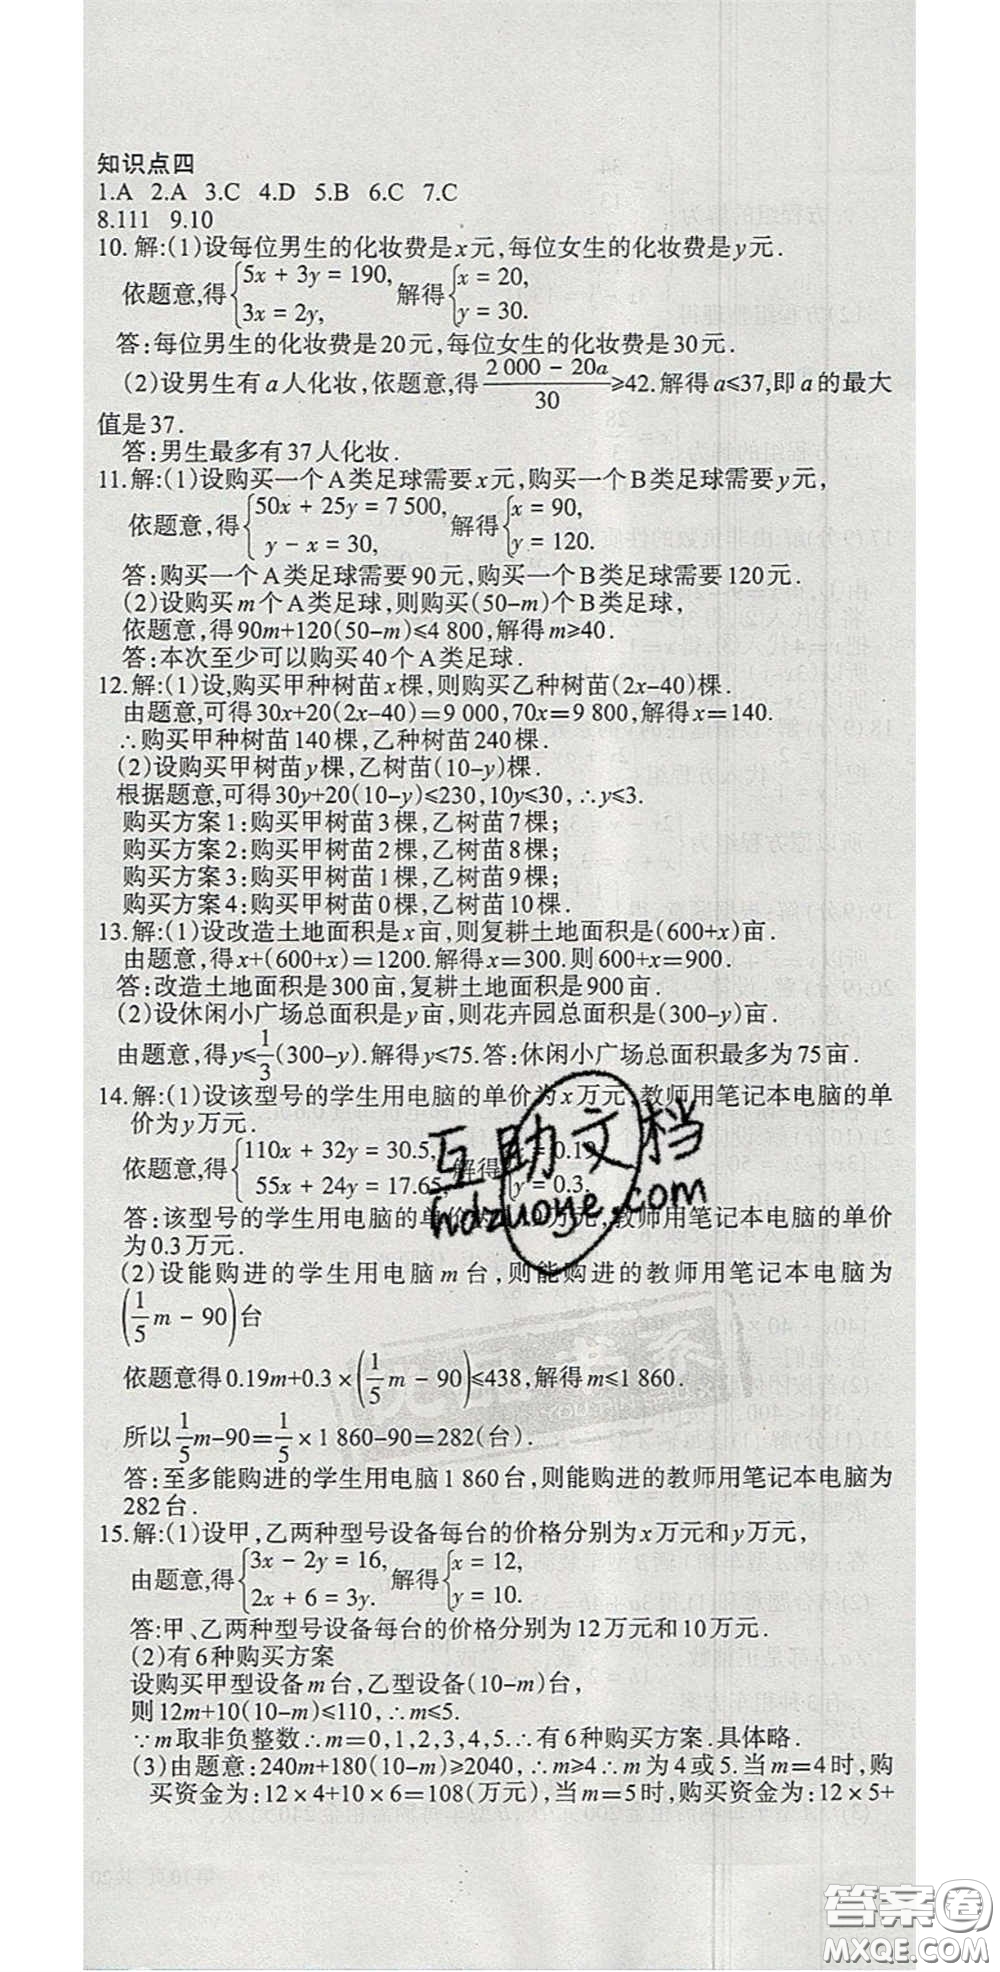 知识点四
1.A 2.A 3.C 4.D 5.B 6.C 7.C
8.111 9.10
10.解:(1)设每位男生的化妆费是x元,每位女生的化妆费是y元.
依题意,得{5x + 3y = 190, 3x = 2y, 解得{x = 20, y = 30.
答:每位男生的化妆费是20元,每位女生的化妆费是30元.
(2)设男生有a人化妆,依题意,得(2 000 - 20a)/30≥42.解得a≤37,即a的最大
值是37.
答:男生最多有37人化妆.
11.解:(1)设购买一个A类足球需要x元,购买一个B类足球需要y元,
依题意,得{50x + 25y = 7 500, y - x = 30, 解得{x = 90, y = 120.
答:购买一个A类足球需要90元,购买一个B类足球需要120元.
(2)设购买m个A类足球,则购买(50-m)个B类足球,
依题意,得90m+120(50-m)≤4 800,解得m≥40.
答:本次至少可以购买40个A类足球.
12.解:(1)设,购买甲种树苗x棵,则购买乙种树苗(2x-40)棵.
由题意,可得30x+20(2x-40)=9 000,70x=9 800,解得x=140.
∴购买甲种树苗140棵,乙种树苗240棵.
(2)设购买甲树苗y棵,乙树苗(10-y)棵.
根据题意,可得30y+20(10-y)≤230,10y≤30,∴y≤3.
购买方案1:购买甲树苗3棵,乙树苗7棵;
购买方案2:购买甲树苗2棵,乙树苗8棵;
购买方案3:购买甲树苗1棵,乙树苗9棵;
购买方案4:购买甲树苗0棵,乙树苗10棵.
13.解:(1)设改造土地面积是x亩,则复耕土地面积是(600+x)亩.
由题意,得x+(600+x)=1200.解得x=300.则600+x=900.
答:改造土地面积是300亩,复耕土地面积是900亩.
(2)设休闲小广场总面积是y亩,则花卉园总面积是(300-y)亩.
由题意,得y≤1/3(300-y).解得y≤75.答:休闲小广场总面积最多为75亩.
14.解:(1)设该型号的学生用电脑的单价为x万元,教师用笔记本电脑的单
价为y万元.
依题意,得{110x + 32y = 30.5, 55x + 24y = 17.65, 解得{ = 0.19, y = 0.3.
答:该型号的学生用电脑的单价为 万元,教师用笔记本电脑的单价
为0.3万元.
(2)设能购进的学生用电脑m台,则能购进的教师用笔记本电脑为
(1/5 m - 90)台
依题意得0.19m+0.3×(1/5 m - 90)≤438,解得m≤1 860.
所以1/5 m-90=1/5×1 860-90=282(台).
答:至多能购进的学生用电脑1 860台,则能购进的教师用笔记本电脑为
282台.
15.解:(1)设甲,乙两种型号设备每台的价格分别为x万元和y万元,
由题意,得{3x - 2y = 16, 2x + 6 = 3y. 解得{x = 12, y = 10.
答:甲、乙两种型号设备每台的价格分别为12万元和10万元.
(2)有6种购买方案
设购买甲型设备m台,乙型设备(10-m)台,
则12m+10(10-m)≤110,∴m≤5.
∵m取非负整数∴m=0,1,2,3,4,5.∴有6种购买方案.具体略.
(3)由题意:240m+180(10-m)≥2040,∴m≥4∴m为4或5.当m=4时,购
买资金为:12×4+10×6=108(万元),当m=5时,购买资金为:12×5+
互助文档
hdzuoye.com
答案圈
MXQE.COM